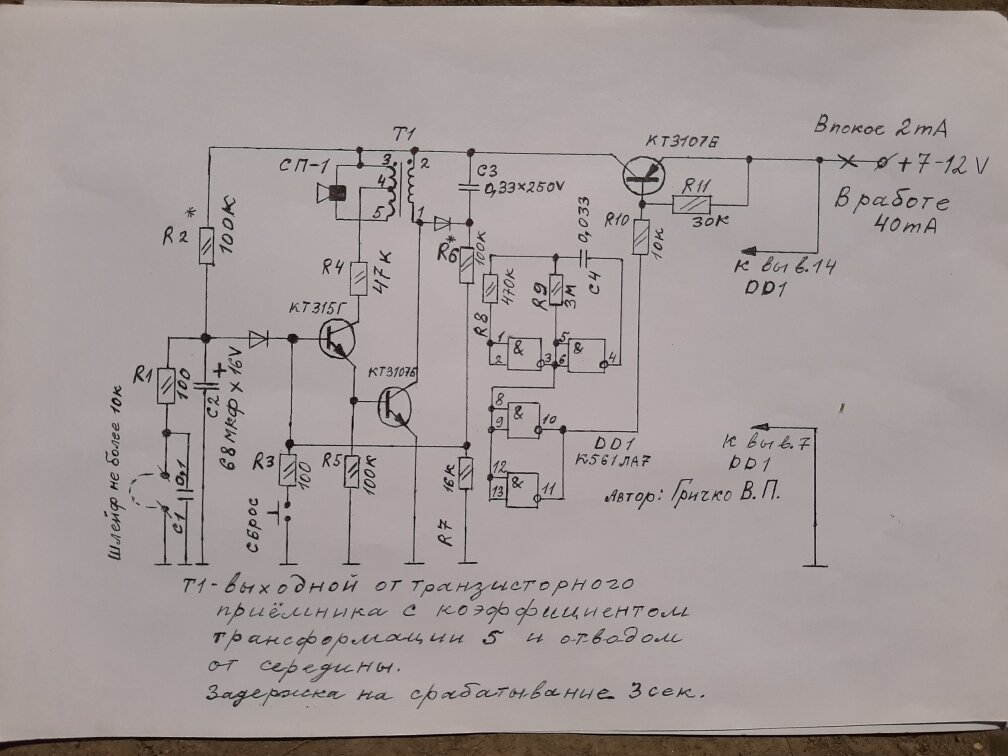 T1
КТ3107Б
Впокое 2mA
+7-12 V
В работе
40mA
СП-1
3
2
4
5
1
C3
0,33×250V
R11
30К
R10
10К
0,033
C4
R2*
100К
R4
47К
R6*
100К
R8
470К
R9
3М
К выв.14
DD1
КТ315Г
&
1
2
3
&
5
6
4
КТ3107Б
R1
100
C2
+
68 мкф × 16V
&
8
9
10
DD1
К561ЛА7
К выв.7
DD1
Шлейф не более 10к
C1
0,1
R3
100
Сброс
R5
100К
16К
R7
&
12
13
11
Автор: Гричко В.П.
T1-выходной от транзисторного
приёмника с коэффициентом
трансформации 5 и отводом
от середины.
Задержка на срабатывание 3сек.